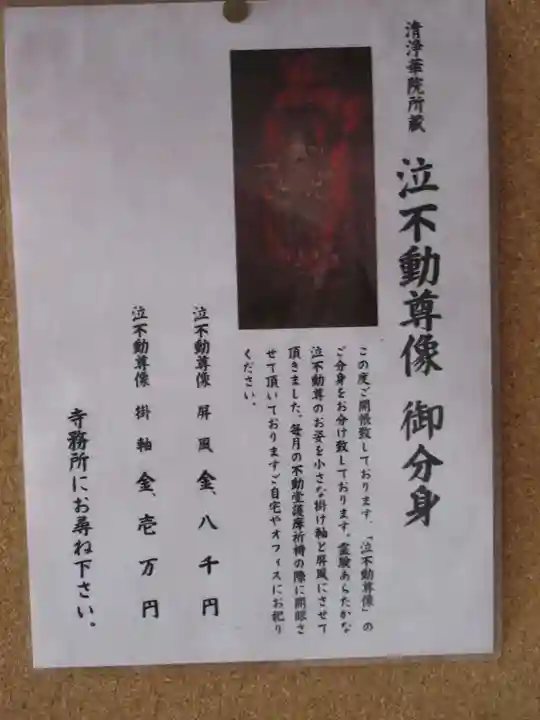 清浄華院所蔵
泣不動尊像 御分身
この度ご開帳致しております、「泣不動尊像」の
ご分身をお分け致しております。霊験あらたかな
泣不動尊のお姿を小さな掛け軸と屏風にさせて
頂きました。毎月の不動堂護摩祈祷の際に開眼さ
せて頂いておりますご自宅やオフィスにお祀り
ください。
泣不動尊像 屏風 金、八千円
泣不動尊像 掛軸 金、壱万円
寺務所にお尋ね下さい。